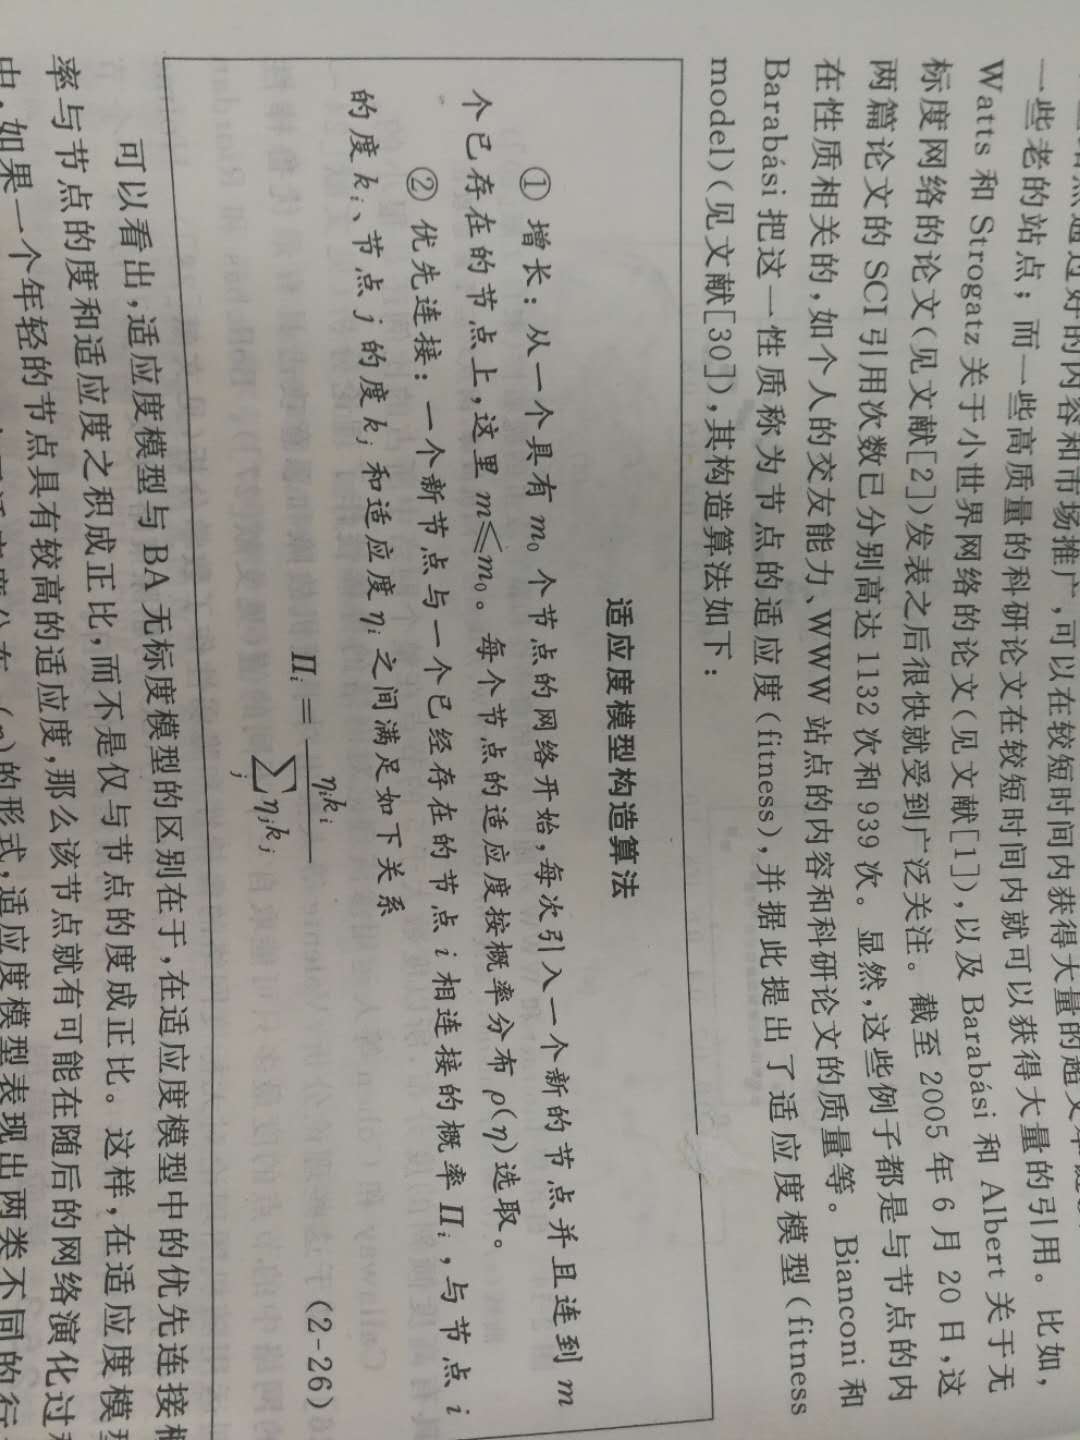 点通过好的内容和市场推广,可以在较短时间内获得大量的超文本
一些老的站点;而一些高质量的科研论文在较短时间内就可以获得大量的引用。比如,
Watts 和 Strogatz 关于小世界网络的论文(见文献[1]),以及 Barabási 和 Albert 关于无
标度网络的论文(见文献[2])发表之后很快就受到广泛关注。截至 2005 年 6 月 20 日,这
两篇论文的 SCI 引用次数已分别高达 1132 次和 939 次。显然,这些例子都是与节点的内
在性质相关的,如个人的交友能力、WWW 站点的内容和科研论文的质量等。Bianconi 和
Barabási 把这一性质称为节点的适应度(fitness),并据此提出了适应度模型(fitness
model)(见文献[30]),其构造算法如下:
适应度模型构造算法
① 增长:从一个具有 m₀ 个节点的网络开始,每次引入一个新的节点并且连到 m
个已存在的节点上,这里 m≤m₀。每个节点的适应度按概率分布 ρ(η)选取。
② 优先连接:一个新节点与一个已经存在的节点 i 相连接的概率 Πᵢ,与节点 i
的度 kᵢ、节点 j 的度 kⱼ 和适应度 ηᵢ 之间满足如下关系
Πᵢ = ηᵢkᵢ / ∑ⱼ ηⱼkⱼ (2-26)
可以看出,适应度模型与 BA 无标度模型的区别在于,在适应度模型中的优先连接概
率与节点的度和适应度之积成正比,而不是仅与节点的度成正比。这样,在适应度模型
中,如果一个年轻的节点具有较高的适应度,那么该节点就有可能在随后的网络演化过
(η)的形式,适应度模型表现出两类不同的行